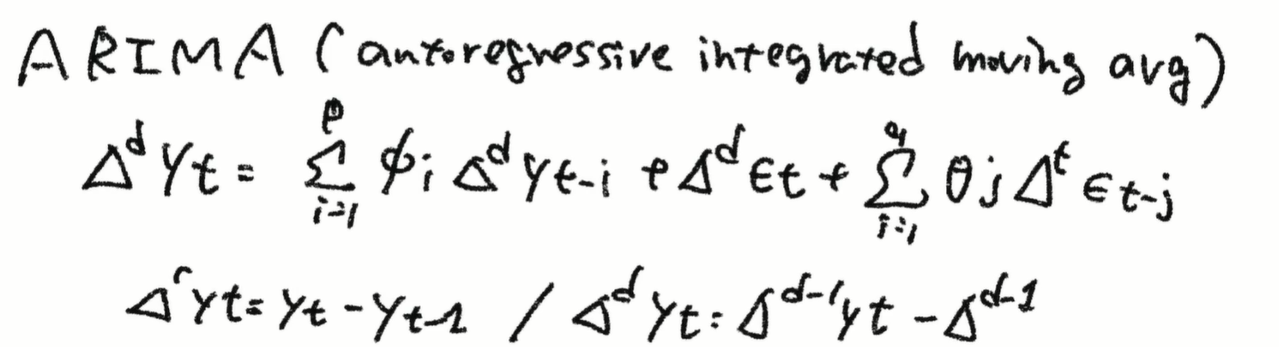 ARIMA (autoregressive integrated moving avg)
Δ^d Yt = Σ_{i=1}^{p} ϕi Δ^d Yt-i + Δ^d ϵt + Σ_{i=1}^{q} θj Δ^t ϵt-j
Δ^r Yt = Yt - Yt-1 / Δ^d Yt = Δ^{d-1} yt - Δ^{d-1}